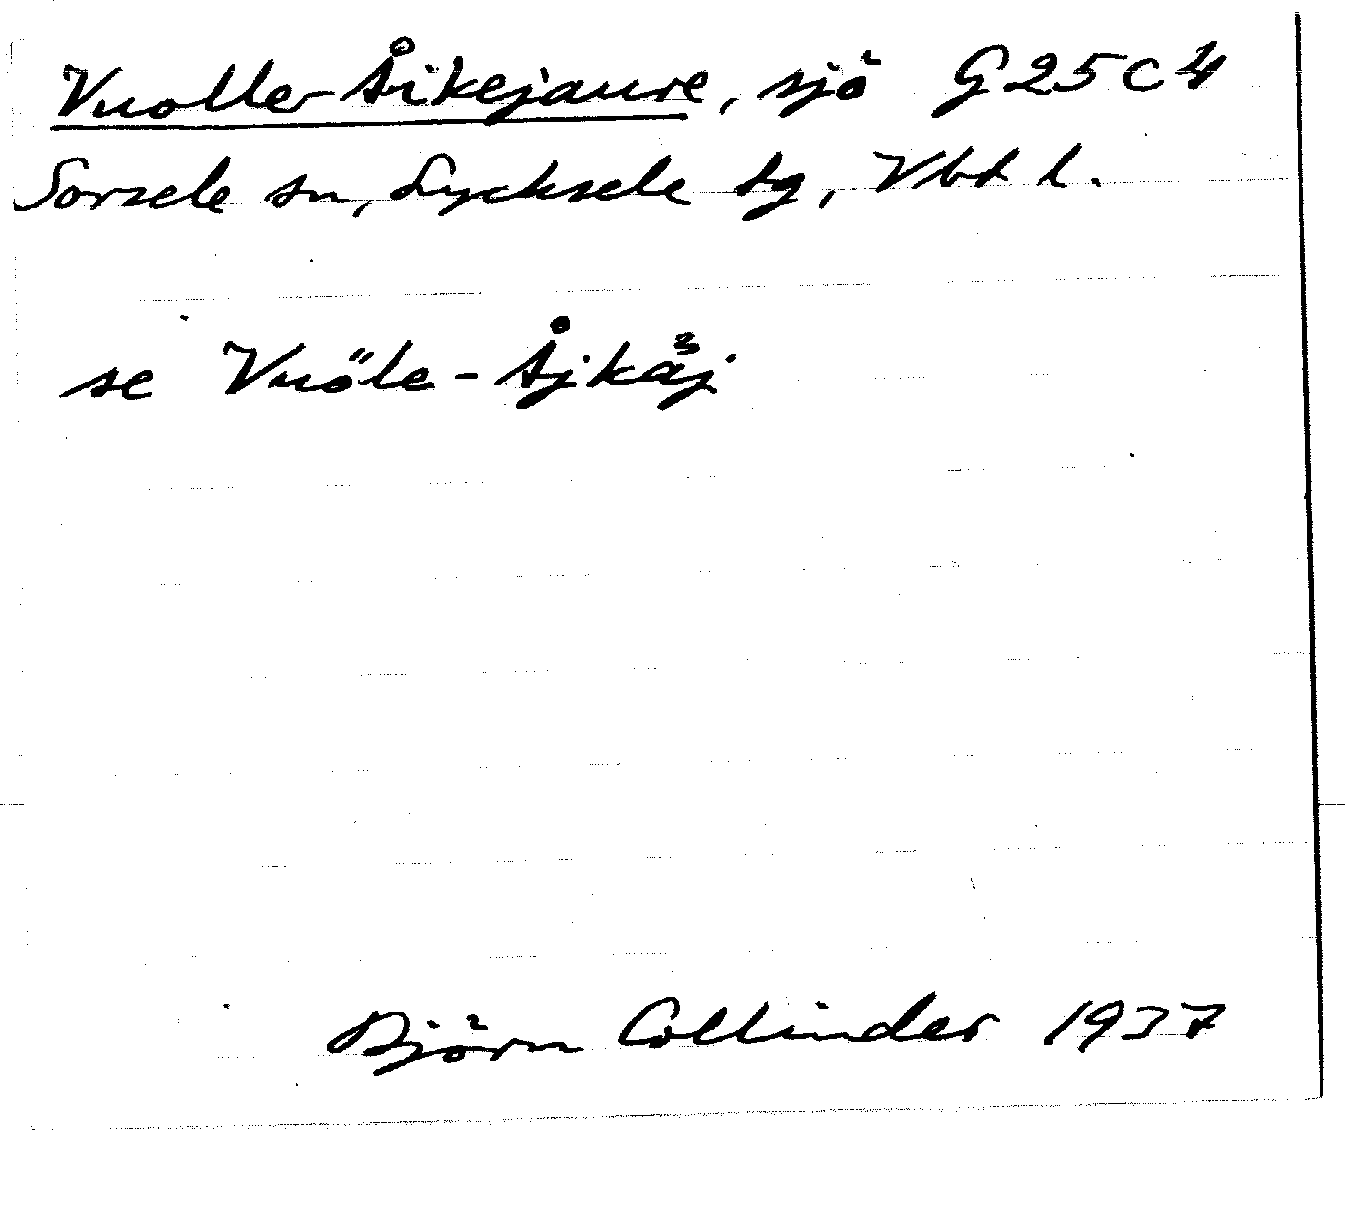 Vuoller Åikejaure, sjö G 25 C 4
Sorsele sn, Lycksele tg, Vbt l.
se Vuöle-Åjkåj
Björn Collinder 1937